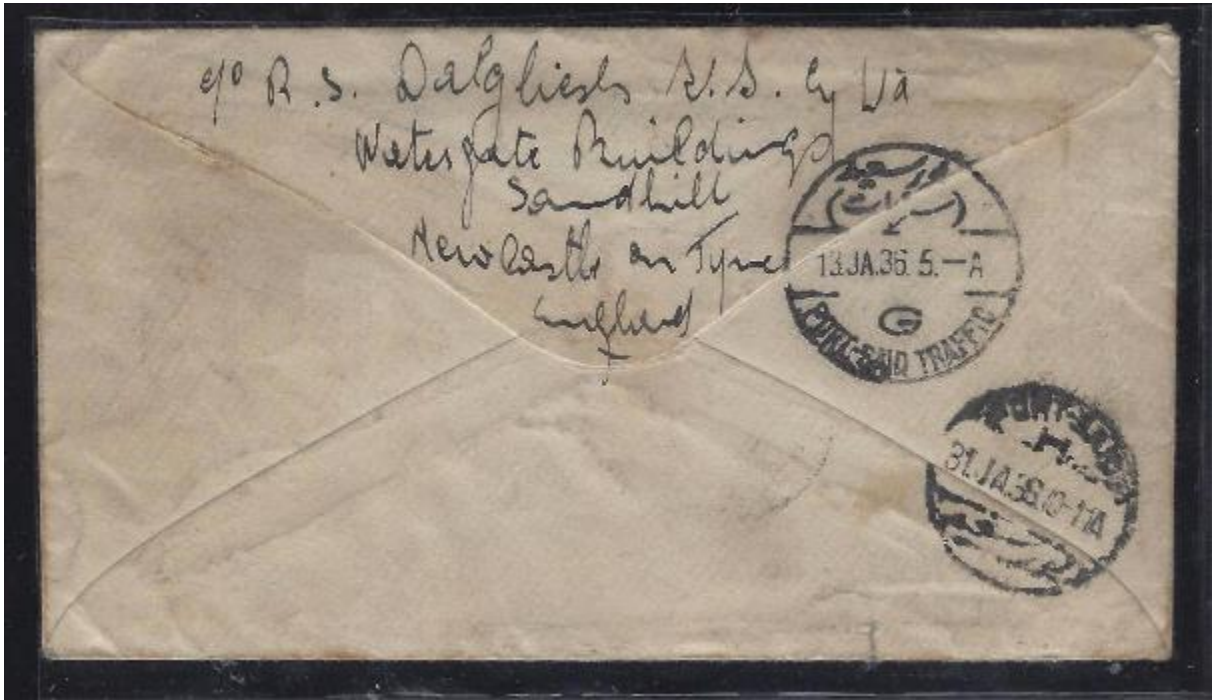 c/o R. S. Dalgliesh S.S. Cy Ltd
Watergate Buildings
Sandhill
Newcastle on Tyne
England
بورسعيد
13.JA.36. 5.—A
G
PORT-SAID TRAFFIC
PORT-SAID
31.JA.36.10-11A